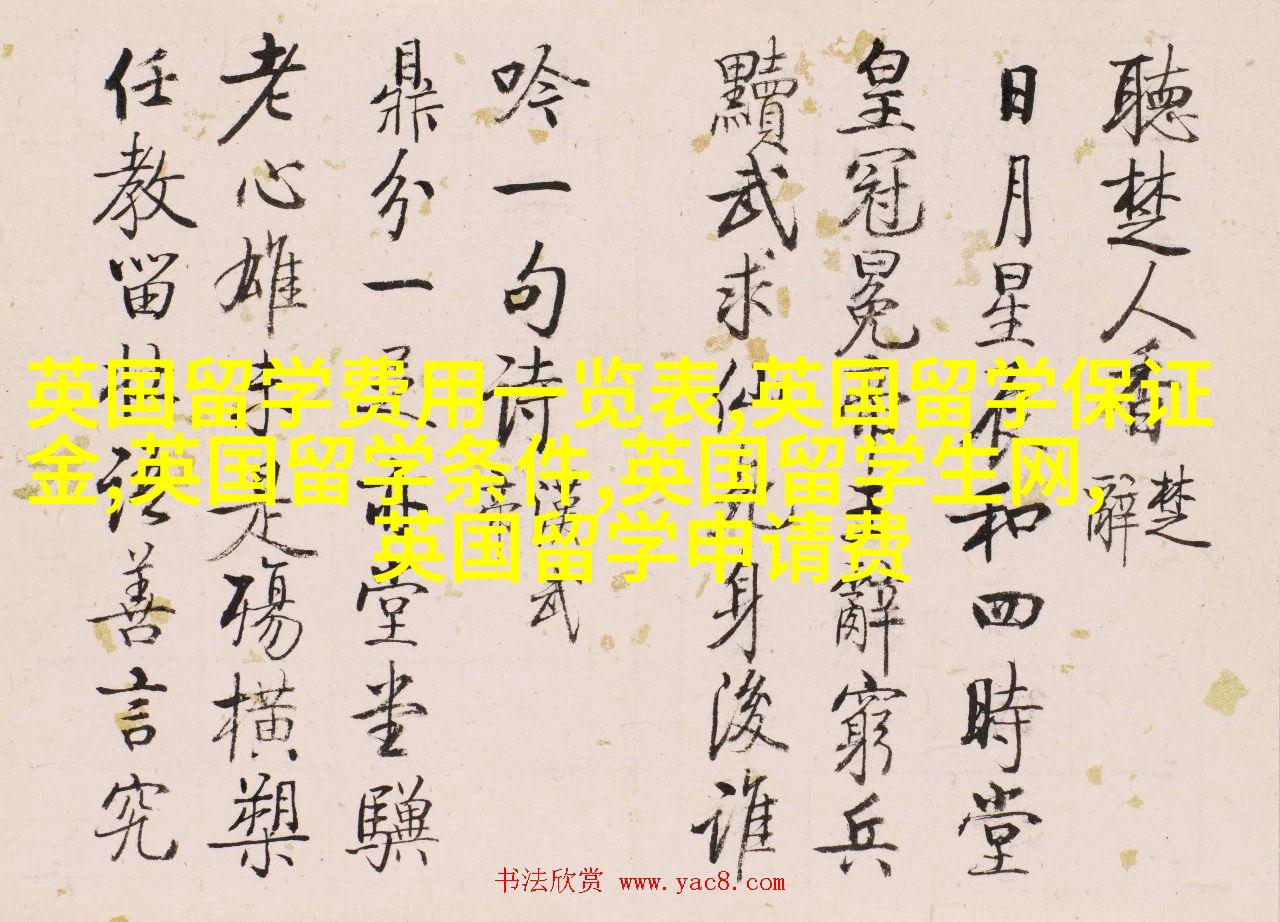 聽楚人看 楚辭
日月星辰和四時堂
皇冠冕帝王辭窮兵
黷武求仙身後誰
吟一句詩 漢武帝
鼎分一足亦堂堂驥
老心雄未是殤橫槊
任教留語善言究
英国留学费用一览表,英国留学保证
金,英国留学条件,英国留学生网,
英国留学申请费
书法欣赏 www.yac8.com